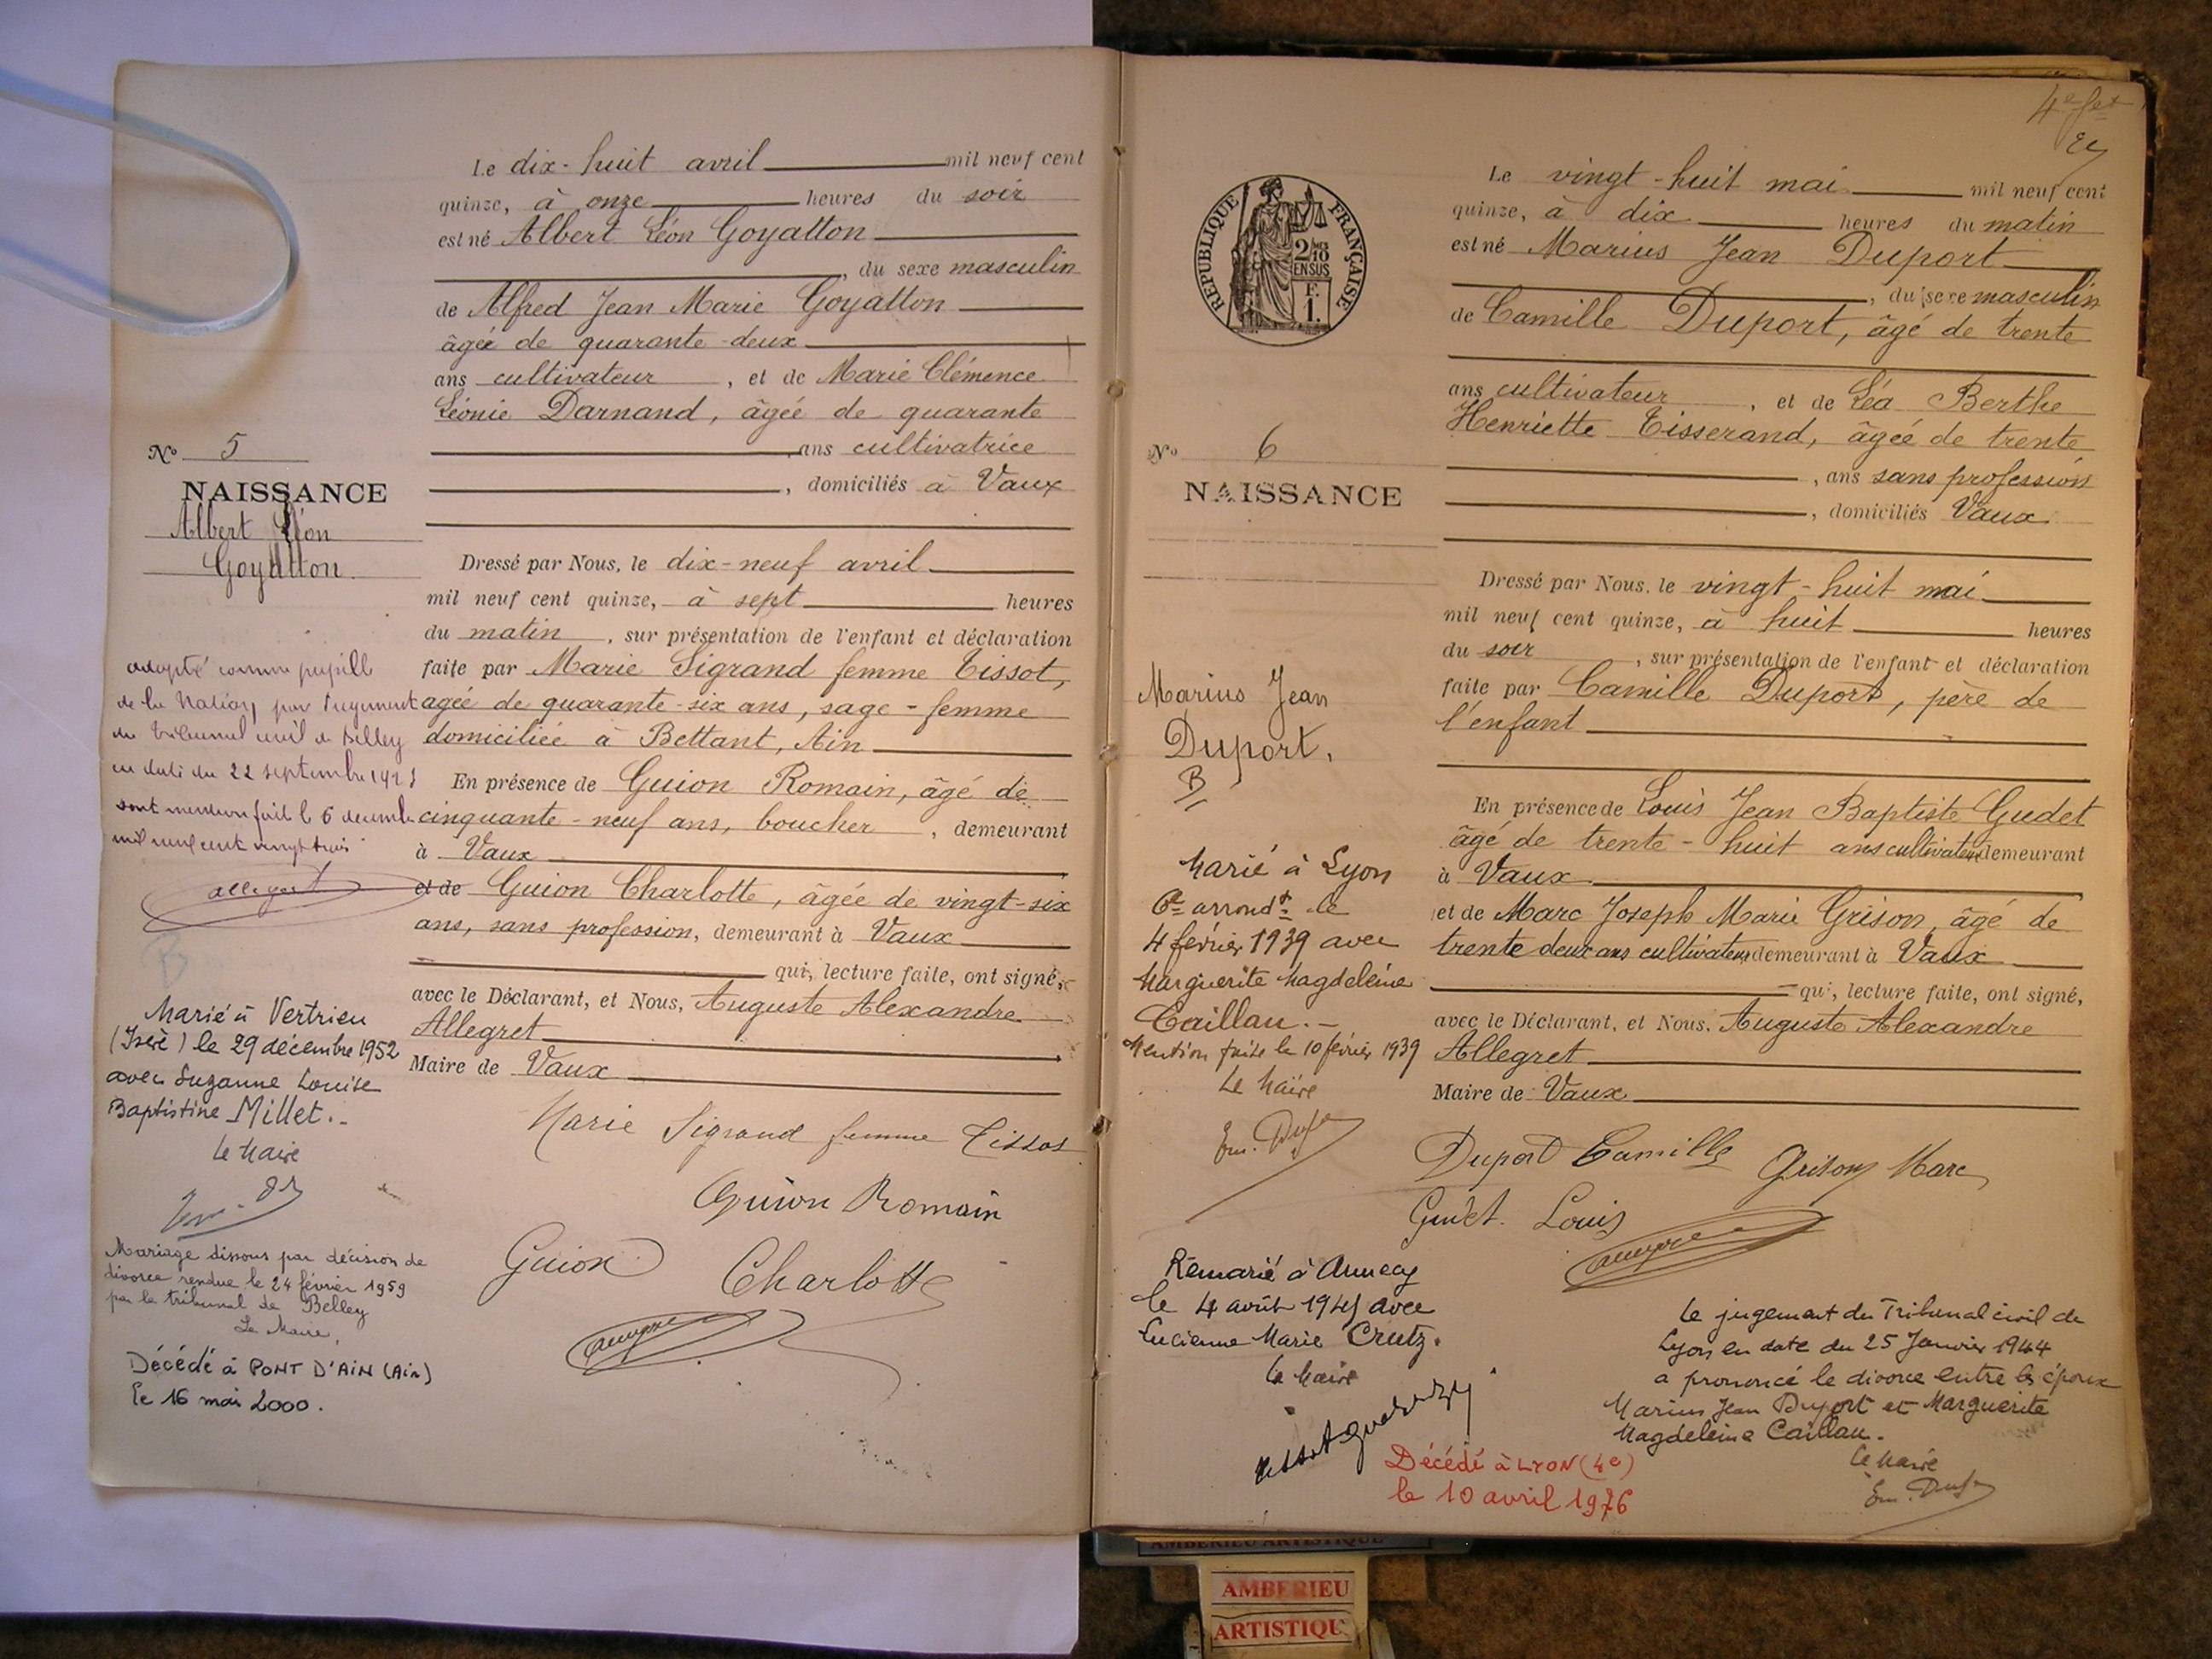 Le dix-huit avril mil neuf cent
quinze, à onze heures du soir
est né Albert Léon Goyatton
, du sexe masculin
de Alfred Jean Marie Goyatton
âgée de quarante-deux
ans cultivateur, et de Marie Clémence
Léonie Darnand, âgée de quarante
ans cultivatrice
, domiciliés à Vaux
N° 5
NAISSANCE
Albert Léon
Goyatton.
Dressé par Nous, le dix-neuf avril
mil neuf cent quinze, à sept heures
du matin, sur présentation de l'enfant et déclaration
faite par Marie Sigrand femme Tissot,
agée de quarante-six ans, sage-femme
domiciliée à Bettant, Ain
En présence de Guion Romain, âgé de
cinquante-neuf ans, boucher, demeurant
à Vaux
et de Guion Charlotte, âgée de vingt-six
ans, sans profession, demeurant à Vaux
qui, lecture faite, ont signé,
avec le Déclarant, et Nous, Auguste Alexandre
Allegret
Maire de Vaux
Marie Sigrand femme Tissot
Guion Romain
Guion Charlotte
adopté comme pupille
de la Nation par Jugement
du tribunal civil de Belley
en date du 22 septembre
mention fait le 6 décembre
mil neuf cent vingt trois
allegret
B
Marié à Vertrieu
(Isère) le 29 décembre 1952
avec Suzanne Louise
Baptistine Millet.-
Le Maire
Mariage dissous par décision de
divorce rendue le 24 février 1959
par le tribunal de Belley
Le Maire,
Décédé à PONT D'AIN (Ain)
le 16 mai 2000.
4e
RÉPUBLIQUE FRANÇAISE
2/10
EN SUS
F.
1.
Le vingt-huit mai mil neuf cent
quinze, à dix heures du matin
est né Marius Jean Duport
, du sexe masculin
de Camille Duport, âgé de trente
ans cultivateur, et de Léa Berthe
Henriette Tisserand, âgée de trente
, ans sans profession
, domiciliés Vaux
N° 6
NAISSANCE
Dressé par Nous, le vingt-huit mai
mil neuf cent quinze, à huit heures
du soir, sur présentation de l'enfant et déclaration
faite par Camille Duport, père de
l'enfant
En présence de Louis Jean Baptiste Gudet
âgé de trente-huit ans cultivateur demeurant
à Vaux
et de Marc Joseph Marie Grison, âgé de
trente deux ans cultivateur demeurant à Vaux
qui, lecture faite, ont signé,
avec le Déclarant, et Nous, Auguste Alexandre
Allegret
Maire de Vaux
Duport Camille Grison Marc
Gudet Louis
Marius Jean
Duport.
B
Marié à Lyon
6e arrondt le
4 février 1939 avec
Marguerite Magdeleine
Caillau.-
Mention faite le 10 février 1939
Le Maire
Remarié à Annecy
le 4 août 1945 avec
Lucienne Marie Crutz.
Le Maire
Le jugement du Tribunal civil de
Lyon en date du 25 Janvier 1944
a prononcé le divorce entre les époux
Marius Jean Duport et Marguerite
Magdeleine Caillau.
Le Maire
Décédé à LYON (4e)
le 10 avril 1976
AMBERIEU ARTISTIQUE
AMBERIEU
ARTISTIQU